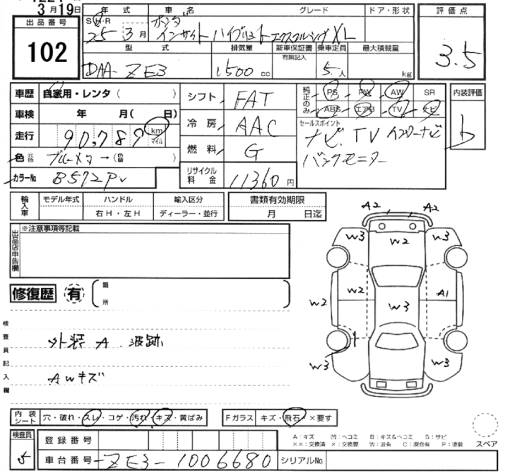 3月19日
出品番号
102
年式
車名
グレード
ドア・形状
評価点
25年3月
ホンダ
インサイト ハイブリット エクスクルーシブXL
3.5
型式
排気量
新車保証書
有無記入
乗車定員
最大積載量
DAA-ZE3
1500cc
5人
kg
車歴
自家用・レンタ(
車検
年 月( 日)
走行
90,787
km
マイル
色
ブルーメタ
カラーNo
B572P
シフト
FAT
冷房
AAC
燃料
G
リサイクル料金
11360円
純正のみ
PS PW AW SR
ABS エアB TV ナビ
内装評価
b
セールスポイント
ナビ、TV インターナビ
バックモニター
輸入車
モデル年式
ハンドル
右H・左H
輸入区分
ディーラー・並行
書類有効期限
月 日迄
出品店申告欄
※注意事項等記載
修復歴
有
箇所
検査員記入欄
外装A 波跡
AWキズ
A2
A2
W3
W2
W3
W2
W3
A1
W2
W3
W2
W3
内装シート
穴・破れ・スレ・コゲ・汚れ・キズ・黄ばみ
Fガラス
キズ・飛石・×要す
検査員
5
登録番号
車台番号
ZE3-1006680
シリアルNo
スペア